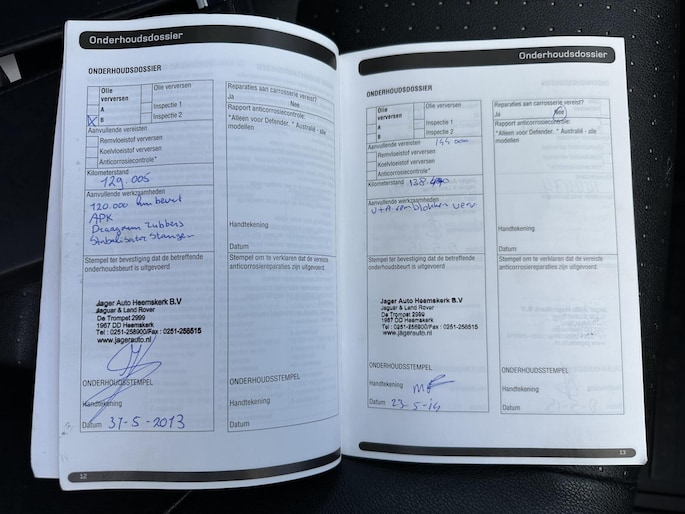 Onderhoudsdossier
ONDERHOUDSDOSSIER
Olie
verversen
A
B
X
Olie verversen
Inspectie 1
Inspectie 2
Aanvullende vereisten
Remvloeistof verversen
Koelvloeistof verversen
Anticorrosiecontrole*
Kilometerstand
129.005
Aanvullende werkzaamheden
120.000 km beurt
APK
Draagarm rubbers
Stabilisator Stangen
Stempel ter bevestiging dat de betreffende
onderhoudsbeurt is uitgevoerd
Jager Auto Heemskerk B.V
Jaguar & Land Rover
De Trompet 2999
1967 DD Heemskerk
Tel : 0251-256900/Fax : 0251-256515
www.jagerauto.nl
ONDERHOUDSSTEMPEL
Handtekening
Datum 31-5-2013
Reparaties aan carrosserie vereist?
Ja Nee
Rapport anticorrosiecontrole:
*Alleen voor Defender. * Australië - alle
modellen
Handtekening
Datum
Stempel om te verklaren dat de vereiste
anticorrosiereparaties zijn uitgevoerd
ONDERHOUDSSTEMPEL
Handtekening
Datum
12
Onderhoudsdossier
ONDERHOUDSDOSSIER
Olie
verversen
A
B
Olie verversen
Inspectie 1
Inspectie 2
Aanvullende vereisten
Remvloeistof verversen
Koelvloeistof verversen
Anticorrosiecontrole*
Kilometerstand
Aanvullende werkzaamheden
V+A remblokken verv
Stempel ter bevestiging dat de betreffende
onderhoudsbeurt is uitgevoerd
Jager Auto Heemskerk B.V
Jaguar & Land Rover
De Trompet 2999
1967 DD Heemskerk
Tel : 0251-256900/Fax : 0251-256515
www.jagerauto.nl
ONDERHOUDSSTEMPEL
Handtekening
Datum 23-5-14
Reparaties aan carrosserie vereist?
Ja Nee
Rapport anticorrosiecontrole:
*Alleen voor Defender. * Australië - alle
modellen
Handtekening
Datum
Stempel om te verklaren dat de vereiste
anticorrosiereparaties zijn uitgevoerd
ONDERHOUDSSTEMPEL
Handtekening
Datum
13